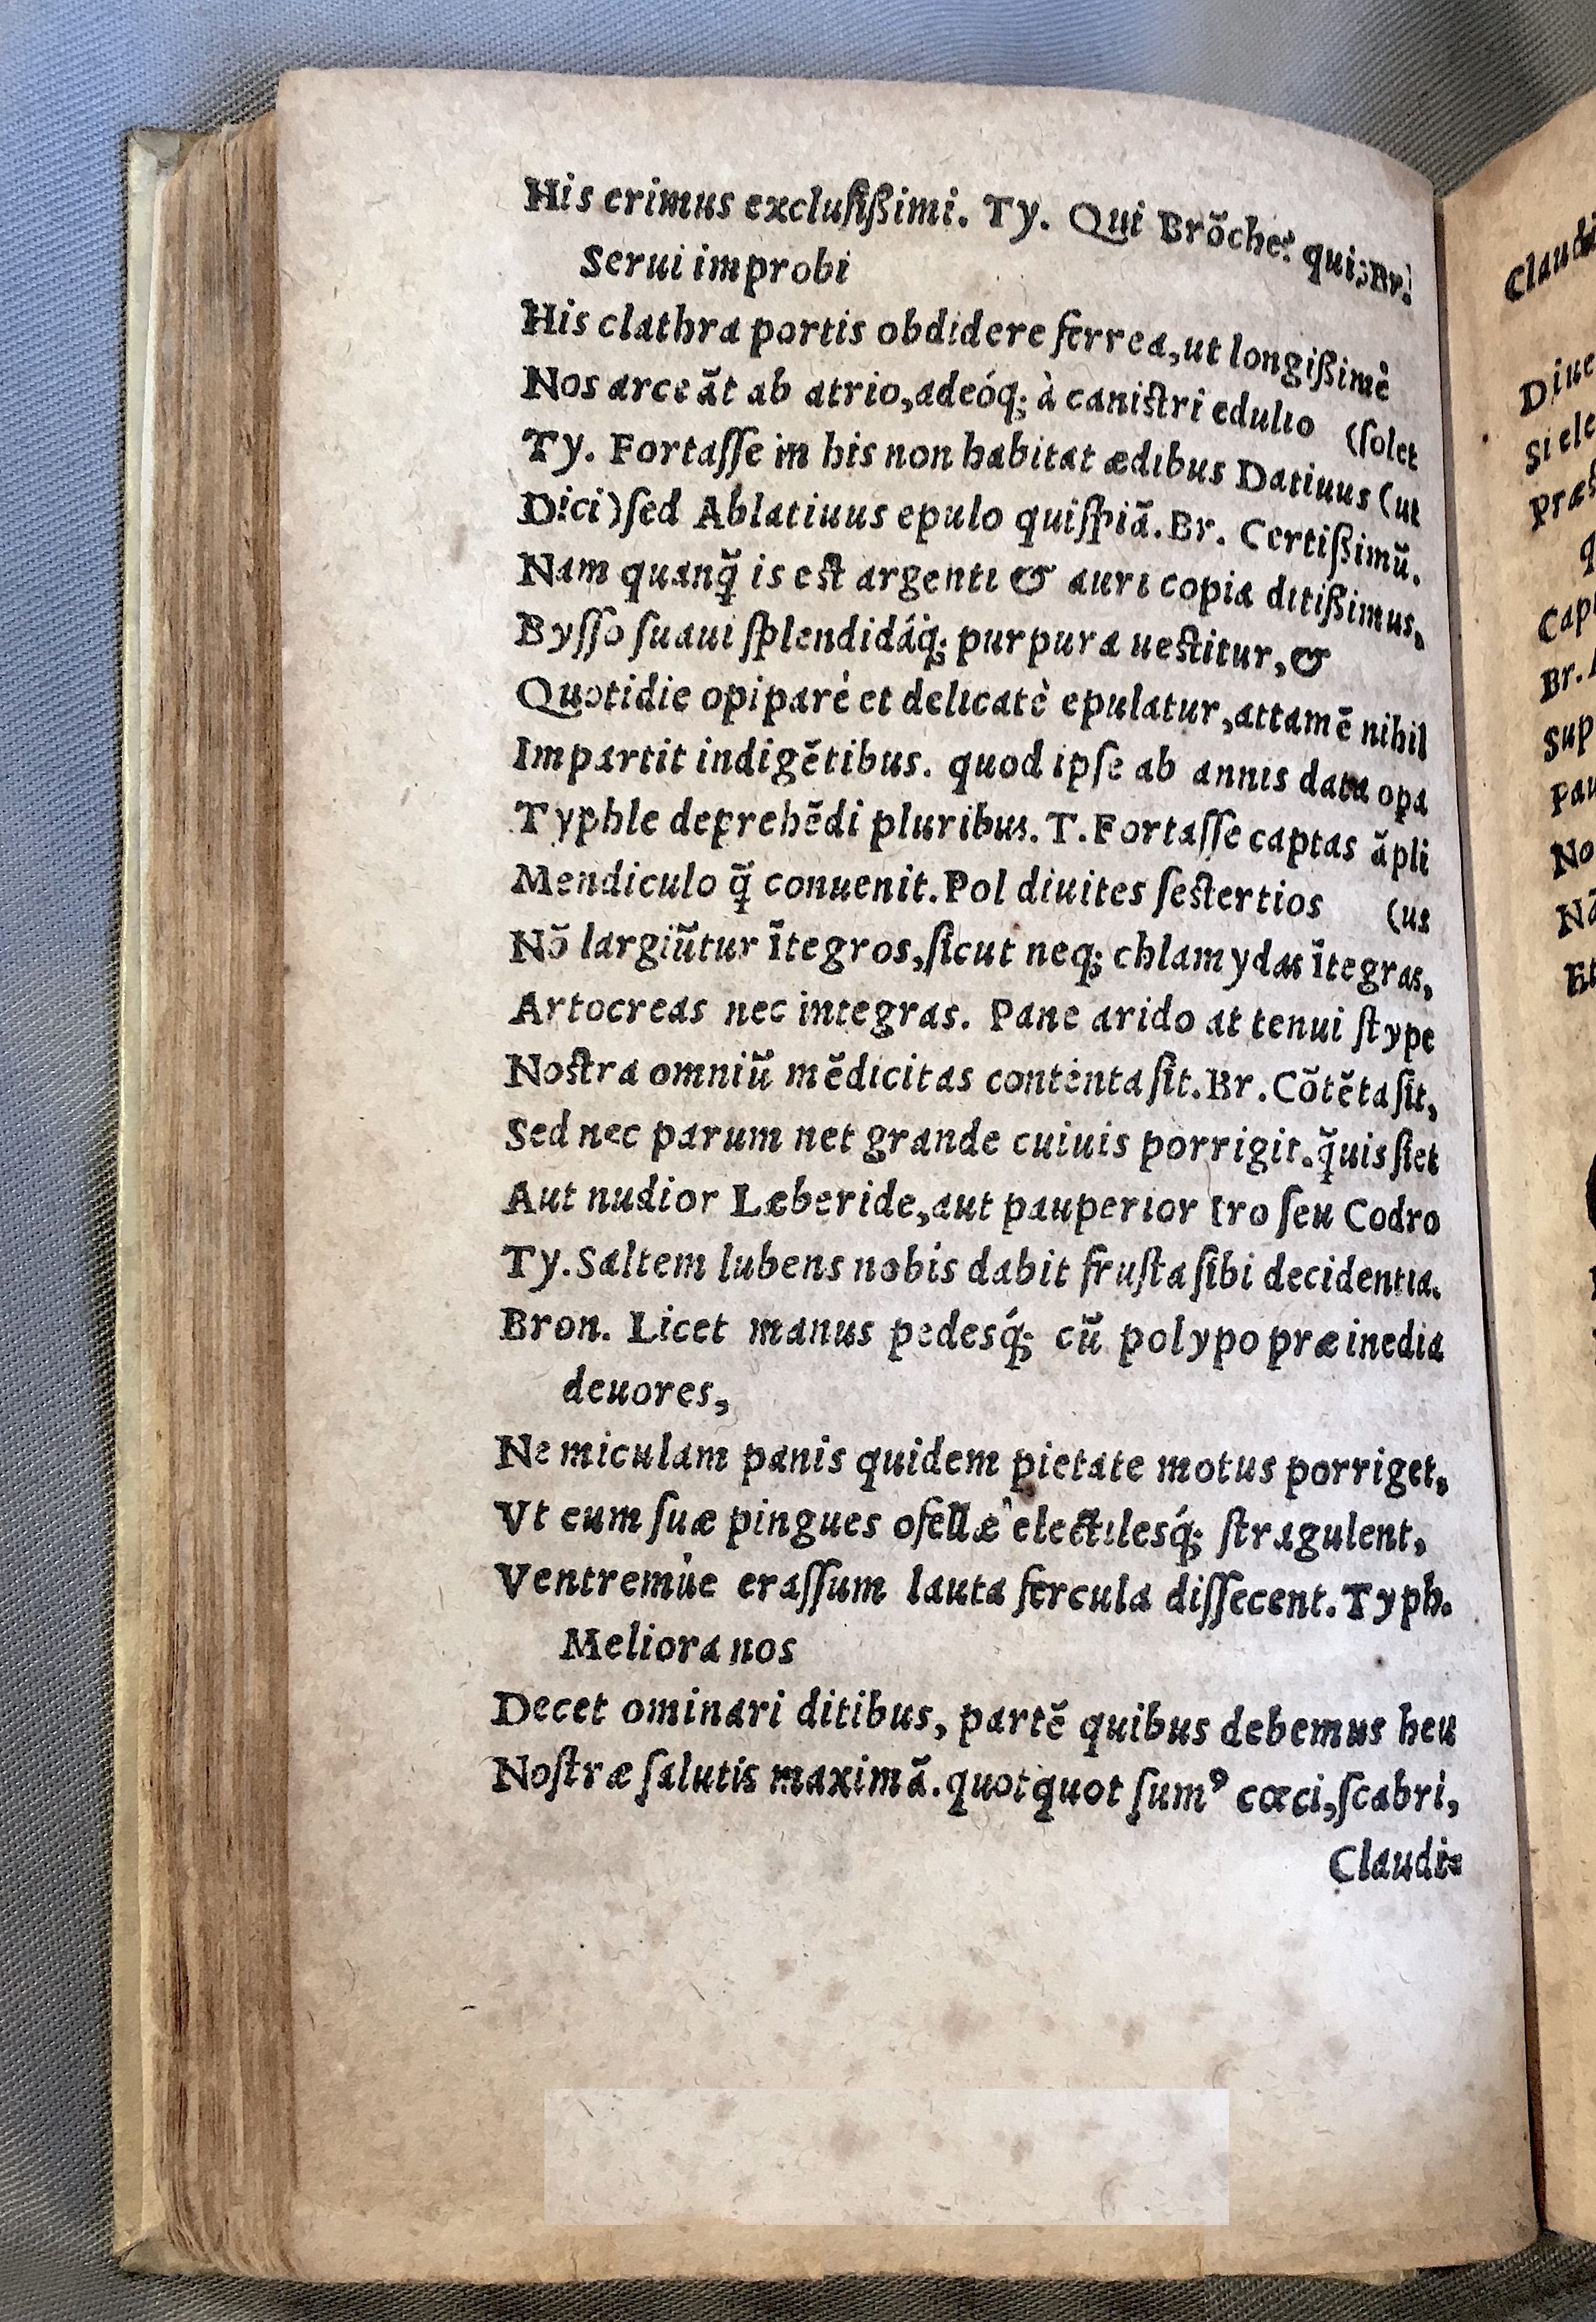 His erimus exclusißimi. Ty. Qui Brõche? qui? Br.
Serui improbi
His clathra portis obdidere ferrea, ut longißimè
Nos arceãt ab atrio, adeóq; à canistri edulio
Ty. Fortasse in his non habitat ædibus Datiuus (ut (solet
Dici) sed Ablatiuus epulo quispiã. Br. Certißimũ.
Nam quanq̃ is est argenti & auri copia ditißimus,
Bysso suaui splendidáq; purpura uestitur, &
Quotidie opiparè et delicatè epulatur, attamẽ nihil
Impartit indigẽtibus. quod ipse ab annis data opa
Typhle deprehẽdi pluribus. T. Fortasse captas ãpli
Mendiculo q̃ conuenit. Pol diuites sestertios (us
Nõ largiũtur ĩtegros, sicut neq; chlamydas ĩtegras,
Artocreas nec integras. Pane arido at tenui stype
Nostra omniũ mẽdicitas contenta sit. Br. Cõtẽta sit,
Sed nec parum net grande cuiuis porrigit. q̃uis siet
Aut nudior Læberide, aut pauperior Iro seu Codro
Ty. Saltem lubens nobis dabit frusta sibi decidentia.
Bron. Licet manus pedesq́; cũ polypo præ inedia
deuores,
Ne miculam panis quidem pietate motus porriget,
Vt eum suæ pingues ofellæ electilesq́; stragulent,
Ventremúe erassum lauta fercula dissecent. Typh.
Meliora nos
Decet ominari ditibus, partẽ quibus debemus heu
Nostræ salutis maximã. quotquot sumꝰ cœci, scabri,
Claudi=
Claudi
Diue
Si ele
Præs
q
Capt
Br.
Sup
Pau
No
Nã
Et